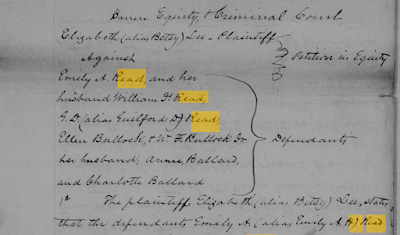 Barren Equity, & Criminal Court
Elizabeth (alias Betsy) Lee - Plaintiff
Against } Petition in Equity
Emily A. Read, and her
husband William H. Read,
G. D. (alias Guilford D.) Read,
Ellen Bullock, & W. F. Bullock Jr
her husband, Annie Ballard, } Defendants
and Charlotte Ballard
1st The plaintiff, Elizabeth (alias, Betsy) Lee, states
that the defendants Emily A. (alias, Emily A. H.) Read